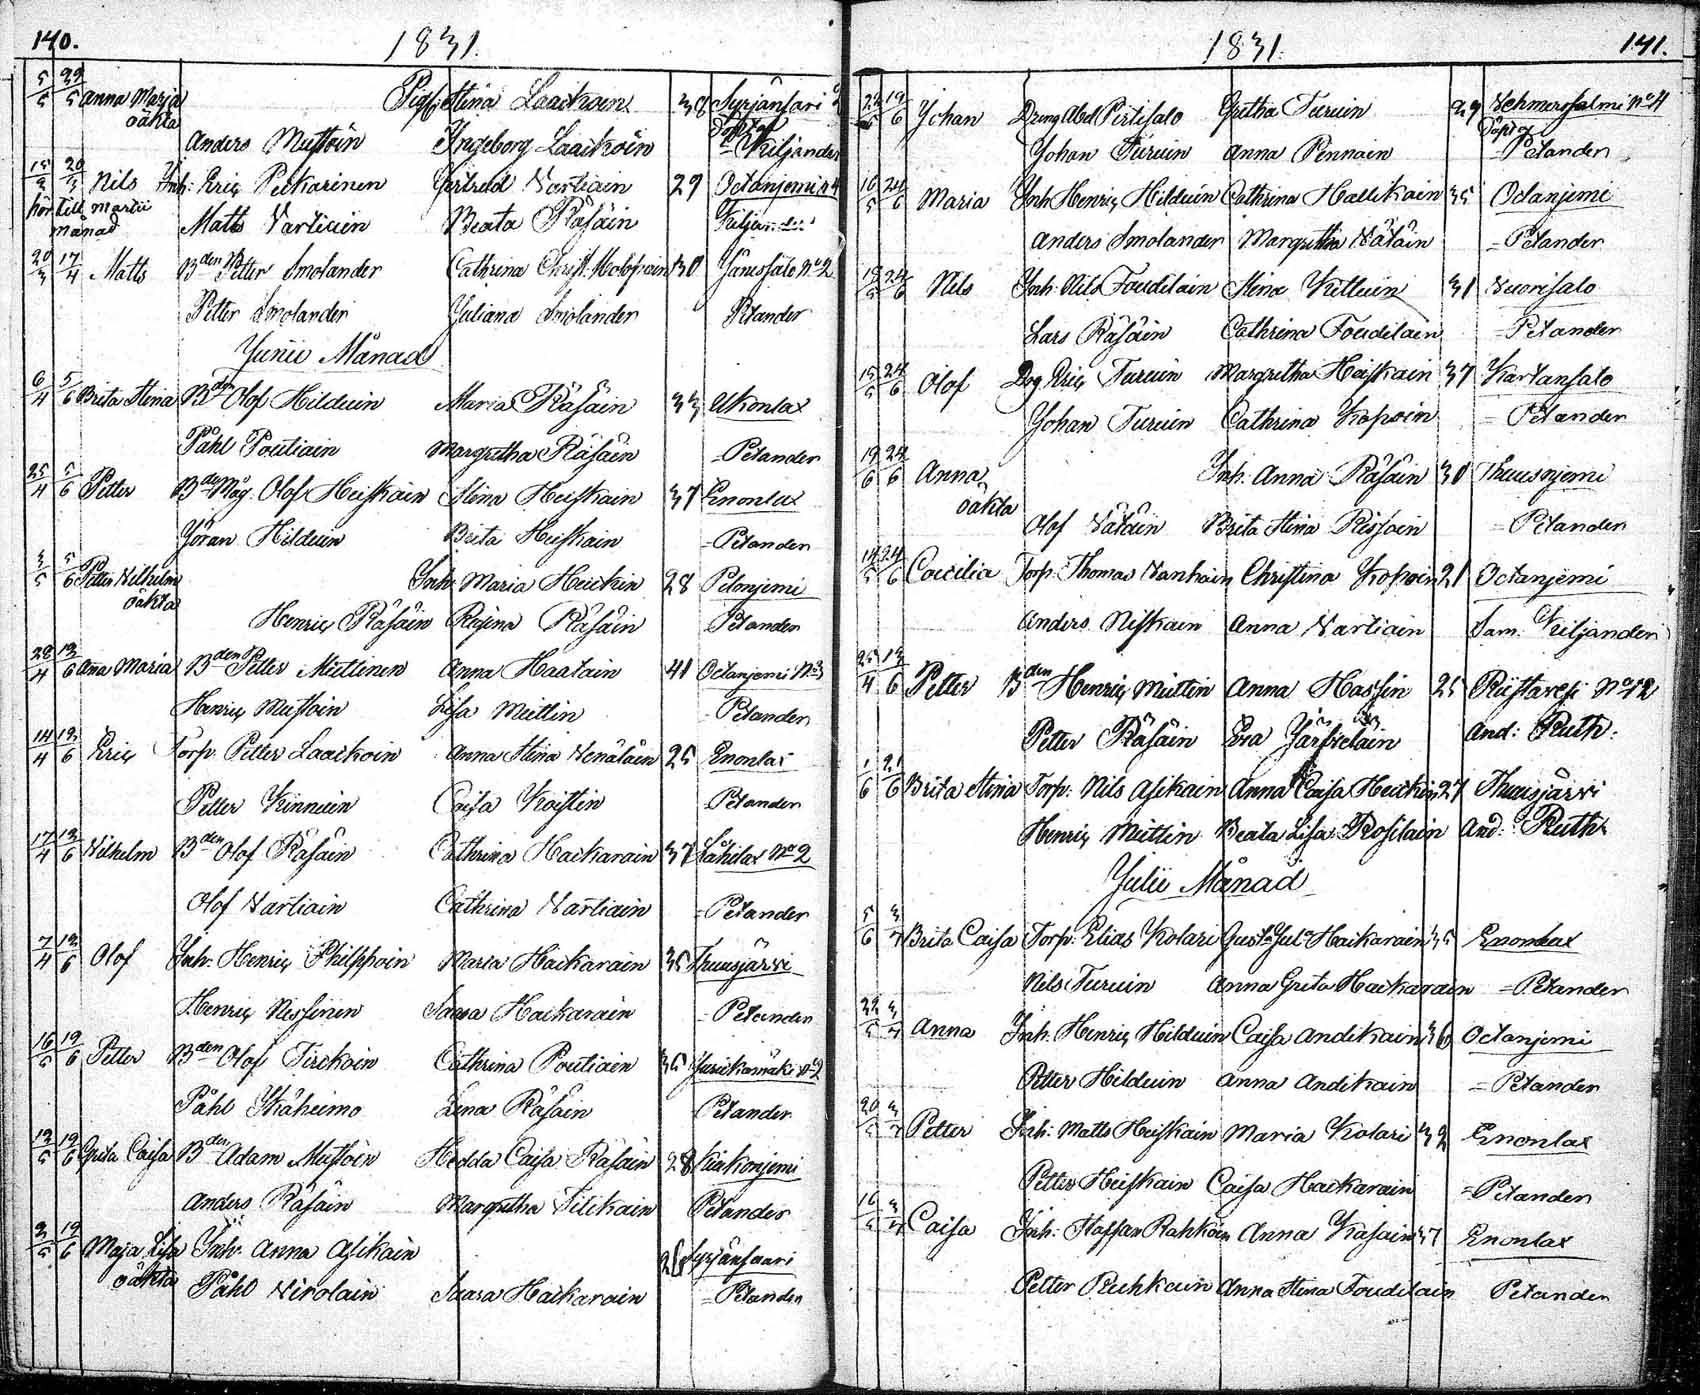 140.
1831.
5/5 29/5 Anna Maria Pig: Stina Laackoin 38 Syrjänsari
oäkta
Anders Mustoin Ingeborg Laackoin Kiljander
15/3 20/3 Nils Inh: Eric Pekkarinen Gertrud Vartiain 29 Octanjemi
hör till martii Matts Vartiain Beata Räsäin Kiljander
månad
20/3 17/4 Matts Bden Petter Smolander Cathrina Christ: 30 Jänissalo No 2
Petter Smolander Juliana Smolander Petander
Junii Månad
6/4 5/6 Brita Stina Bden Olof Hilduin Maria Räsäin 33 Ukonlax
Påhl Poutiain Margretha Räsäin = Petander
25/4 5/6 Petter Bden Måg. Olof Heiskain Stina Heiskain 37 Enonlax
Jöran Hilduin Brita Heiskain = Petander
3/5 5/6 Petter Vilhelm Inh: Maria Heickin 28 Petonjemi
oäkta
Henric Räsäin Regina Räsäin Petander
28/4 12/6 Anna Maria Bden Petter Miettinen Anna Haatain 41 Octanjemi No 3
Henric Mustoin Lisa Miettin = Petander
14/4 12/6 Eric Torp: Petter Laackoin Anna Stina Venäläin 25 Enonlax
Petter Kinnuin Caisa Koistin = Petander
17/4 12/6 Vilhelm Bden Olof Räsäin Cathrina Hackarain 37 Låhilax No 2
Olof Vartiain Cathrina Vartiain = Petander
7/4 12/6 Olof Inh: Henric Philppoin Maria Hackarain 35 Thuusjärvi
Henric Nissinen Saara Hackarain = Petander
16/5 19/6 Petter Bden Olof Tirckoin Cathrina Poutiain 36 Jurickamäki No 2
Påhl Ikäheimo Lena Räsäin Petander
12/5 19/6 Greta Caisa Bden Adam Mustoin Hedda Caisa Räsäin 28 Kiukonjemi
Anders Räsäin Margretha Tilikain Petander
3/5 19/6 Maja Lisa Inh: Anna Asikain 26 Syrjänsaari
oäkta Påhl Nirolain Saara Hackarain = Petander
1831.
141.
22/5 19/6 Johan Dreng Abel Pirtisalo Gretha Turuin 29 Vehmersalmi No 4
Johan Turuin Anna Pennain = Petander
16/5 24/6 Maria Inh Henric Hilduin Cathrina Hallikain 35 Octanjemi
Anders Smolander Margretha Vätäin = Petander
18/5 24/6 Nils Inh: Nils Toudilain Stina Kettuin 31 Vuorisalo
Lars Räsäin Cathrina Toudilain = Petander
15/5 24/6 Olof Drg Eric Turuin Margretha Heiskain 37 Kartansalo
Johan Turuin Cathrina Kopoin = Petander
19/6 24/6 Anna Inh: Anna Räsäin 30 Thuusnjemi
oäkta
Olof Vätäin Brita Stina Rissoin = Petander
14/5 24/6 Coecilia Torp: Thomas Vanhain Christina Kopoin 21 Octanjemi
Anders Niskain Anna Vartiain Sam: Kiljander
25/4 12/6 Petter Bden Henric Miettin Anna Hassin 25 Ristavesi No 12
Petter Räsäin Eva Järveläin And: Ruth.
1/6 21/6 Brita Stina Torp: Nils Asikain Anna Caisa Heickin 27 Thuusjärvi
Henric Miettin Beata Lisa Rosilain And: Ruth
Julii Månad
5/6 3/7 Brita Caisa Torp: Elias Kolari Gusta Jul: Haikarain 35 Enonlax
Nils Turuin Anna Greta Hackarain = Petander
22/5 3/7 Anna Inh. Henric Hilduin Caisa Andikain 36 Octanjemi
Petter Hilduin Anna Andikain = Petander
20/5 3/7 Petter Inh: Matts Heiskain Maria Kolari 32 Enonlax
Petter Heiskain Caisa Hackarain = Petander
16/5 3/7 Caisa Inh: Staffan Rahkoin Anna Kasain 37 Enonlax
Petter Ruhkain Anna Stina Toudilain Petander